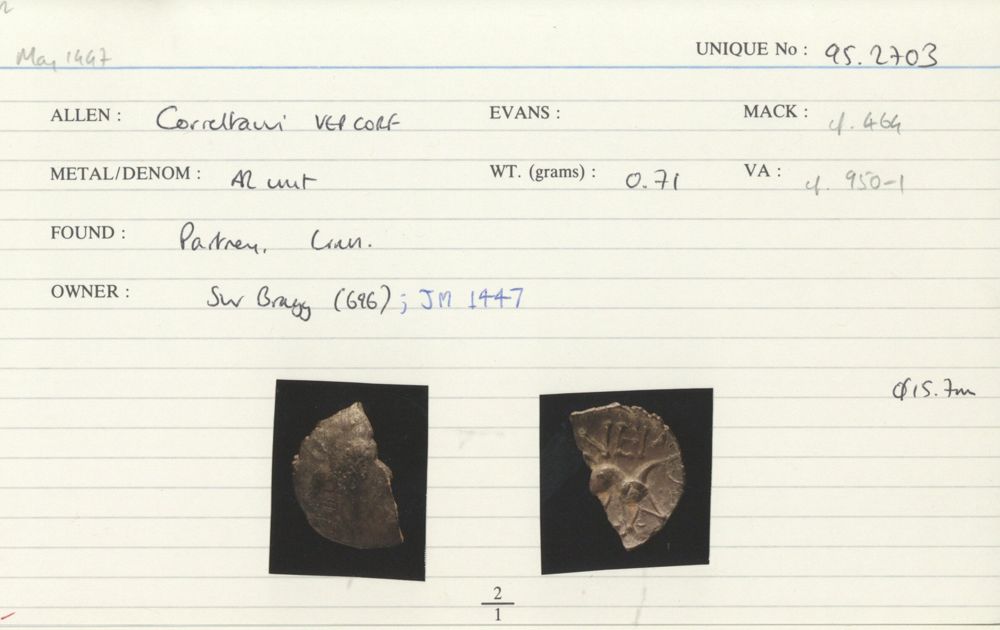 May 1447
UNIQUE No : 95.2703
ALLEN : Correltauvi VEP CORF EVANS : MACK : cf. 464
METAL/DENOM : AR unit WT. (grams) : 0.71 VA : cf. 950-1
FOUND : Partney, Linn.
OWNER : Sur Bragg (696) ; JM 1447
ϕ15.7m
VEP
2
1